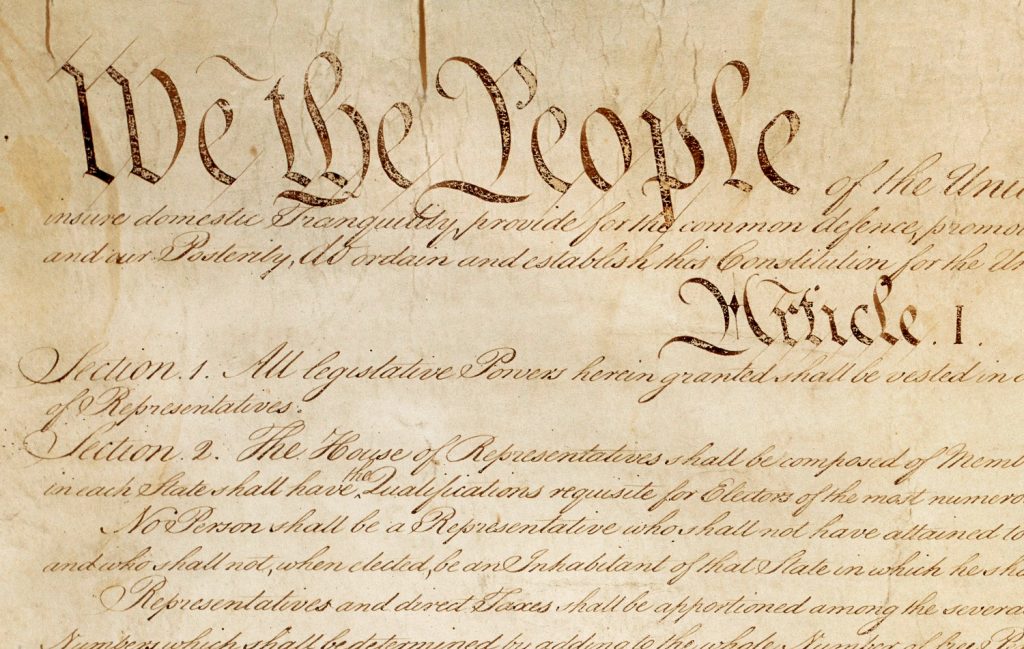 We the People of the Uni
insure domestic Tranquility, provide for the common defence, promo
and our Posterity, do ordain and establish this Constitution for the Un
Article. I.
Section. 1. All legislative Powers herein granted shall be vested in a
of Representatives.
Section. 2. The House of Representatives shall be composed of Memb
in each State shall have the Qualifications requisite for Electors of the most numero
No Person shall be a Representative who shall not have attained to
and who shall not, when elected, be an Inhabitant of that State in which he sha
Representatives and direct Taxes shall be apportioned among the severa
Numbers which shall be determined by adding to the whole Number of free Pe